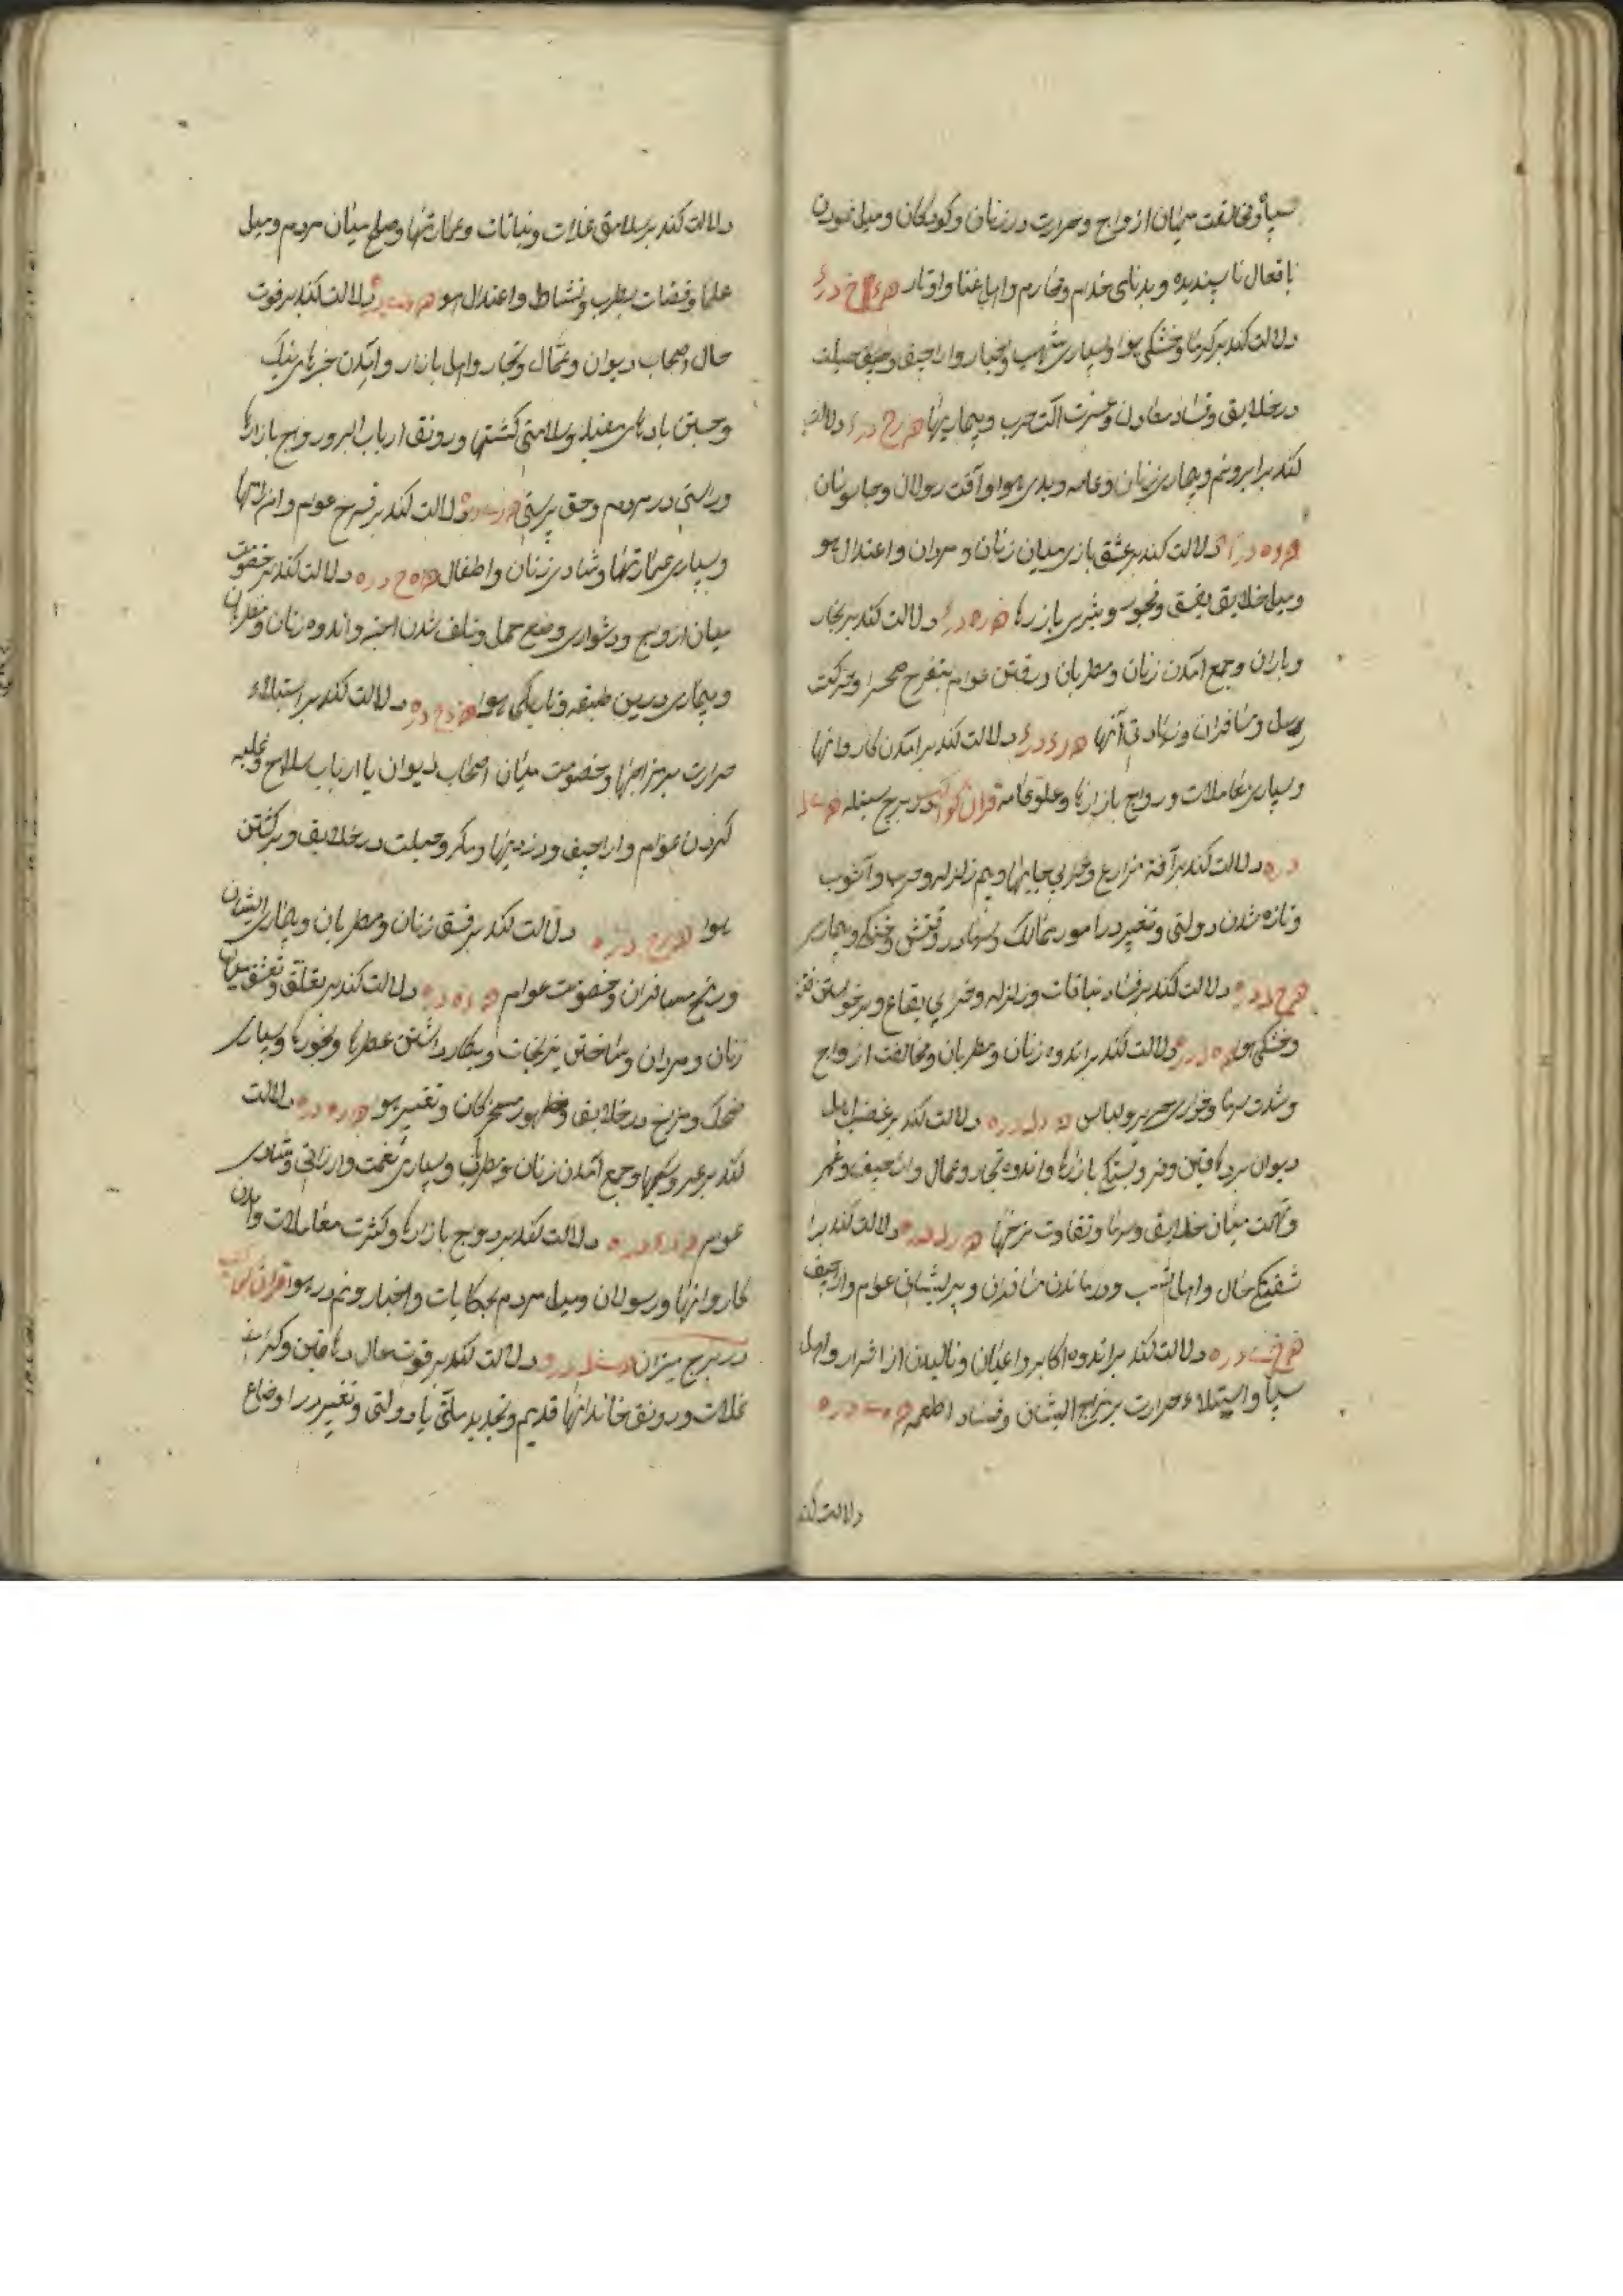 سپاه و مخالفت میان ازواج و حرارت در زنان و کودکان و میل نمودن
بافعال ناپسندیده و بدنامی خدم و محارم و ارباب غنا و اوتار
دلالت کند بر گرما و خشکی هوا و بسیاری شهب و اخبار و اراجیف و حیلت
در خلایق و فساد معادن و عزت آلت حرب و بیماریها دلالت
کند بر ابر و نم و بیماری زنان و عامه و بدی هوا و آفت رسولان و جاسوسان
دلالت کند بر عشق بازی میان زنان و مردان و اعتدال هوا
و میل خلایق بفسق و فجور و بازارها دلالت کند بر بخار
و باران و جمع آمدن زنان و مطربان و رفتن عوام بتفرج صحرا و حرکت
رسل و مسافران و شادی آنها دلالت کند بر آمدن کاروانها
و بسیاری معاملات و رواج بازارها و علو عامه قران کواکب در برج سنبله
دلالت کند بر آفة مزارع و خرابی جایها و بیم زلزله و حرب و آشوب
و تازه شدن دولتی و تغیر در امور ممالک و خشکی و بیماری
دلالت کند بر فساد نباتات و زلزله و خرابی بقاع و برخواستن فتن
و خشکی هوا دلالت کند بر اندوه زنان و مطربان و مخالفت ازواج
و شدت سرما و خواری حریر و لباس دلالت کند بر غضب اهل
دیوان بر دهاقین و فرو بستگی بازارها و اندوه تجار و عمال و اراجیف و غمر
میان خلایق و سرما و تفاوت نرخها دلالت کند بر آ
شفتگی حال و اهل و درماندن مسافران و پریشانی عوام و اراجیف
دلالت کند بر اندوه اکابر و اعیان و نالیدن از اشرار و اهل
سپاه و استیلاء حرارت بر مزاج ایشان و فساد اطعمه
دلالت کند
دلالت کند بر سلامتی غلات و نباتات و عمارتها و صلح میان مردم و میل
علما و قضات بطرب و نشاط و اعتدال هوا دلالت کند بر قوت
حال اصحاب دیوان و عمال و تجار و اهل بازار و آمدن خبرهای نیک
و جستن بادهای معتدل و سلامتی کشتیها و رونق ارباب البر و رواج بازارها
و راستی در مردم و حق پرستی دلالت کند بر فرح عوام و
و بسیاری عمارتها و شادی زنان و اطفال دلالت کند بر خصومت
میان ازواج و دشواری وضع حمل و تلف شدن اجنه و اندوه زنان و مطربان
و بیماری در این طبقه و تاریکی هوا دلالت کند بر استیلاء
حرارت بر مزاجها و خصومت میان اصحاب دیوان با ارباب سلاح و غلبه
کردن عوام و اراجیف و دزدیها و مکر و حیلت در خلایق و برگشتن
هوا دلالت کند بر فسق زنان و مطربان و بیماری ایشان
و رنج مسافران و خصومت عوام دلالت کند بر تعلق و تعشق میان
زنان و مردان و ساختن نیرنجات و بکار داشتن عطرها و بخورها و بسیاری
ضحک و مزاح در خلایق و ظهور مسخرگان و تغییر هوا دلالت
کند بر جمع آمدن زنان و مطربان و بسیاری نعمت و ارزانی و شادی
عوام دلالت کند بر رواج بازارها و کثرت معاملات و آمدن
کاروانها و رسولان و میل مردم بحکایات و اخبار و نم در هوا قران کواکب
در برج میزان دلالت کند بر قوت حال دهاقین و
غلات و رونق خاندانهاء قدیم و تجدید ملتی یا دولتی و تغییر در اوضاع